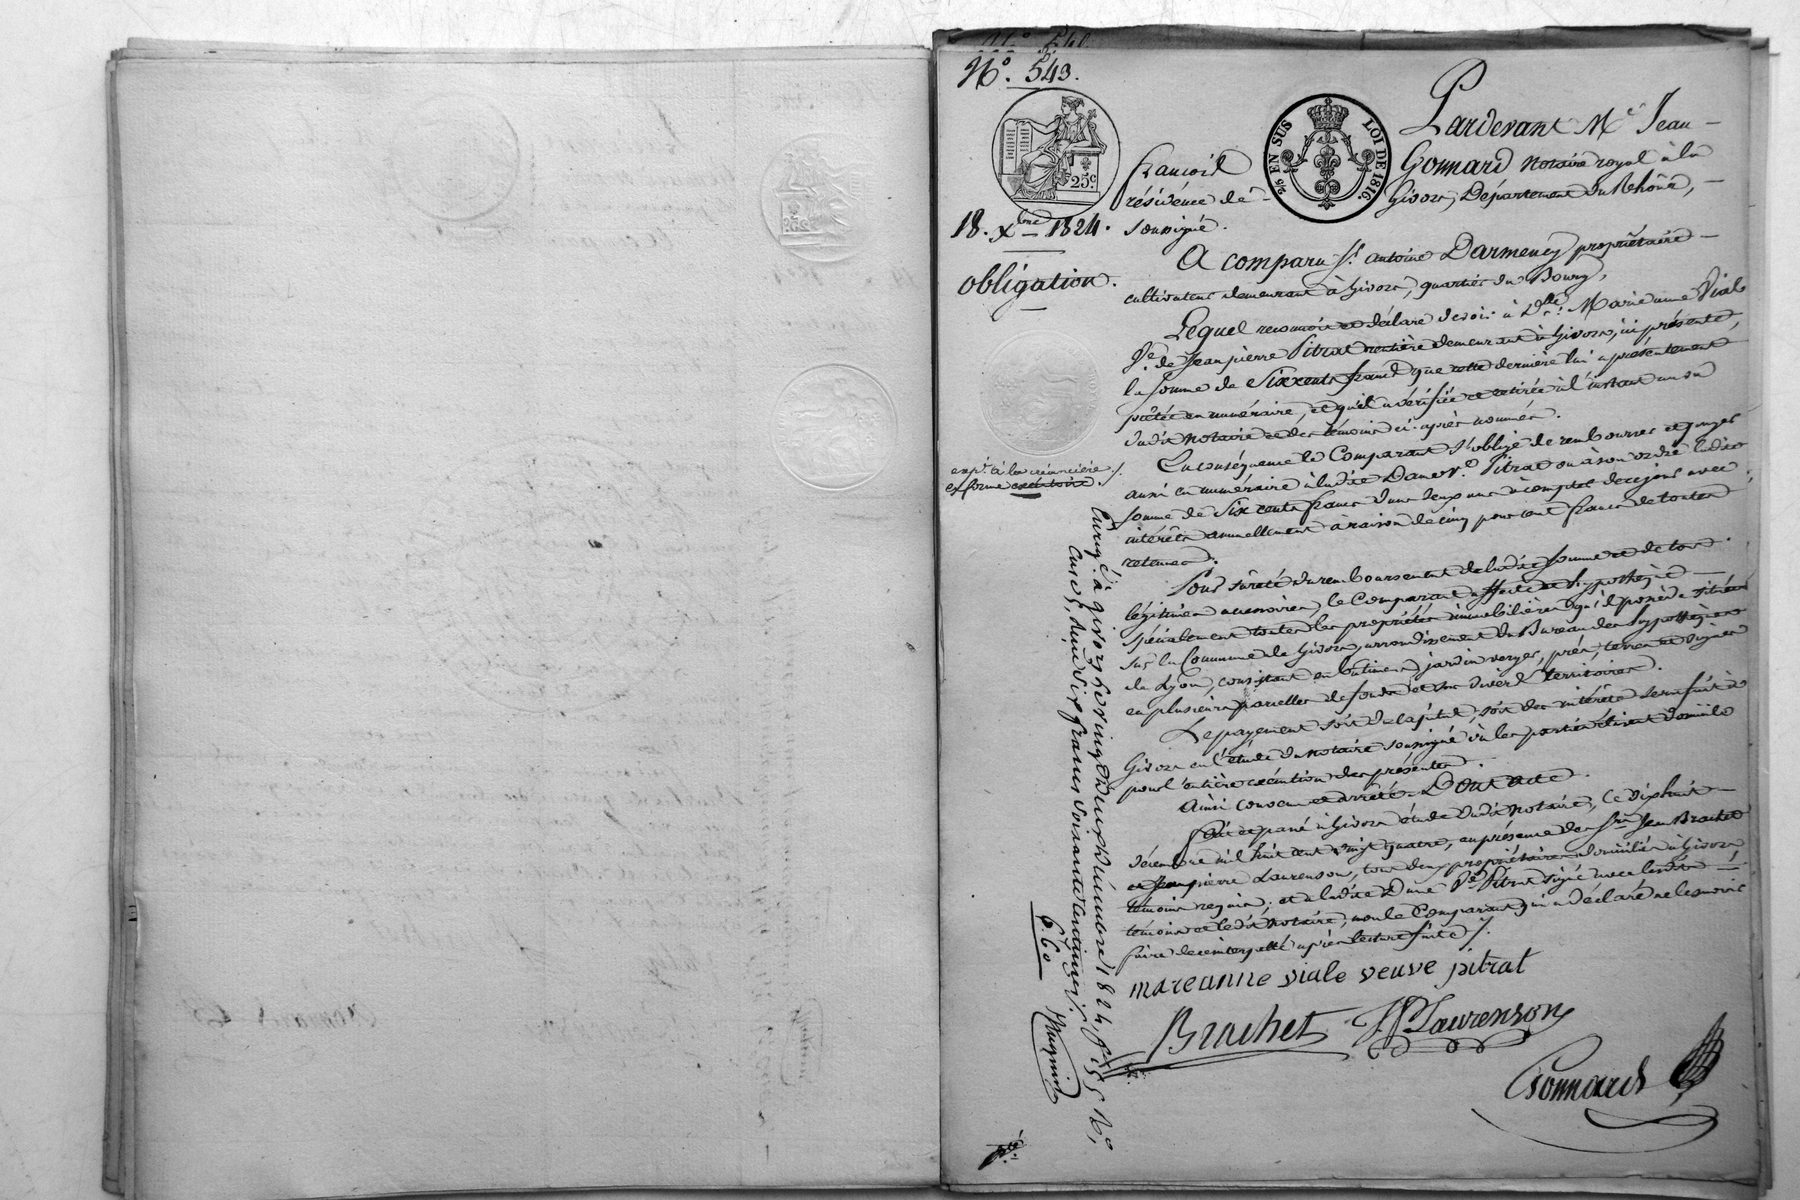 N.° 543.
25c
2/5 EN SUS LOI DE 1816.
18. Xbre 1824.
obligation.
exp.on à la créancière
en forme exécutoire
Pardevant Me. Jean-
François Gonnard notaire royal à la
résidence de Givors, Département du Rhône,
soussigné.
A comparu Sr. antoine Darmency propriétaire
cultivateur demeurant à Givors, quartier du Bourg,
Lequel reconnoit et déclare devoir à Dlle. Marieanne Viale
Ve. de Jean pierre Pitrat rentière demeurant à Givors, ici présente,
la somme de Six cents francs que cette dernière lui a présentement
prêtée en numéraire, et qu'il a vérifiée et retirée à l'instant au vu
dudit notaire et des témoins ci-après nommés.
En conséquence le Comparant s'oblige de rembourser et payer
aussi en numéraire à ladite Dame Ve. Pitrat ou à son ordre ladite
somme de Six cents francs dans deux ans à compter de ce jour avec
intérêts annuellement à raison de cinq pour cent francs de toutes
retenues.
Pour sûreté du remboursement de ladite somme et de tous
légitimes accessoires, le Comparant affecte et hypothèque
spécialement toutes les propriétés immobilières qu'il possède situées
sur la Commune de Givors, arrondissement du Bureau des hypothèques
de Lyon, consistant en bâtiments, jardin verger, prés, terres et vignes
en plusieurs parcelles de fonds et sur divers territoires.
Le payement soit du capital, soit des intérêts sera fait à
Givors en l'étude du notaire soussigné où les parties élisent domicile
pour l'entière exécution des présentes.
Ainsi convenu et arrêté. Dont acte.
fait et passé à Givors étude dudit notaire, ce dixhuit
décembre mil huit cent vingt quatre, en présence des Srs. Jean Brachet
et Jean pierre Laurenson, tous deux propriétaires domiciliés à Givors
témoins requis; et a ladite Dame Ve. Pitrat signé avec lesdits
témoins et ledit notaire, non le Comparant qui a déclaré ne le savoir
faire de ce interpellé après lecture faite.
mareanne viale veuve pitrat
Brachet JPLaurenson
Gonnard
Enreg.é à Givors le vingt deux décembre 1824, f.° 55 R.°,
Case 5, reçu six francs soixante centimes.
6.60